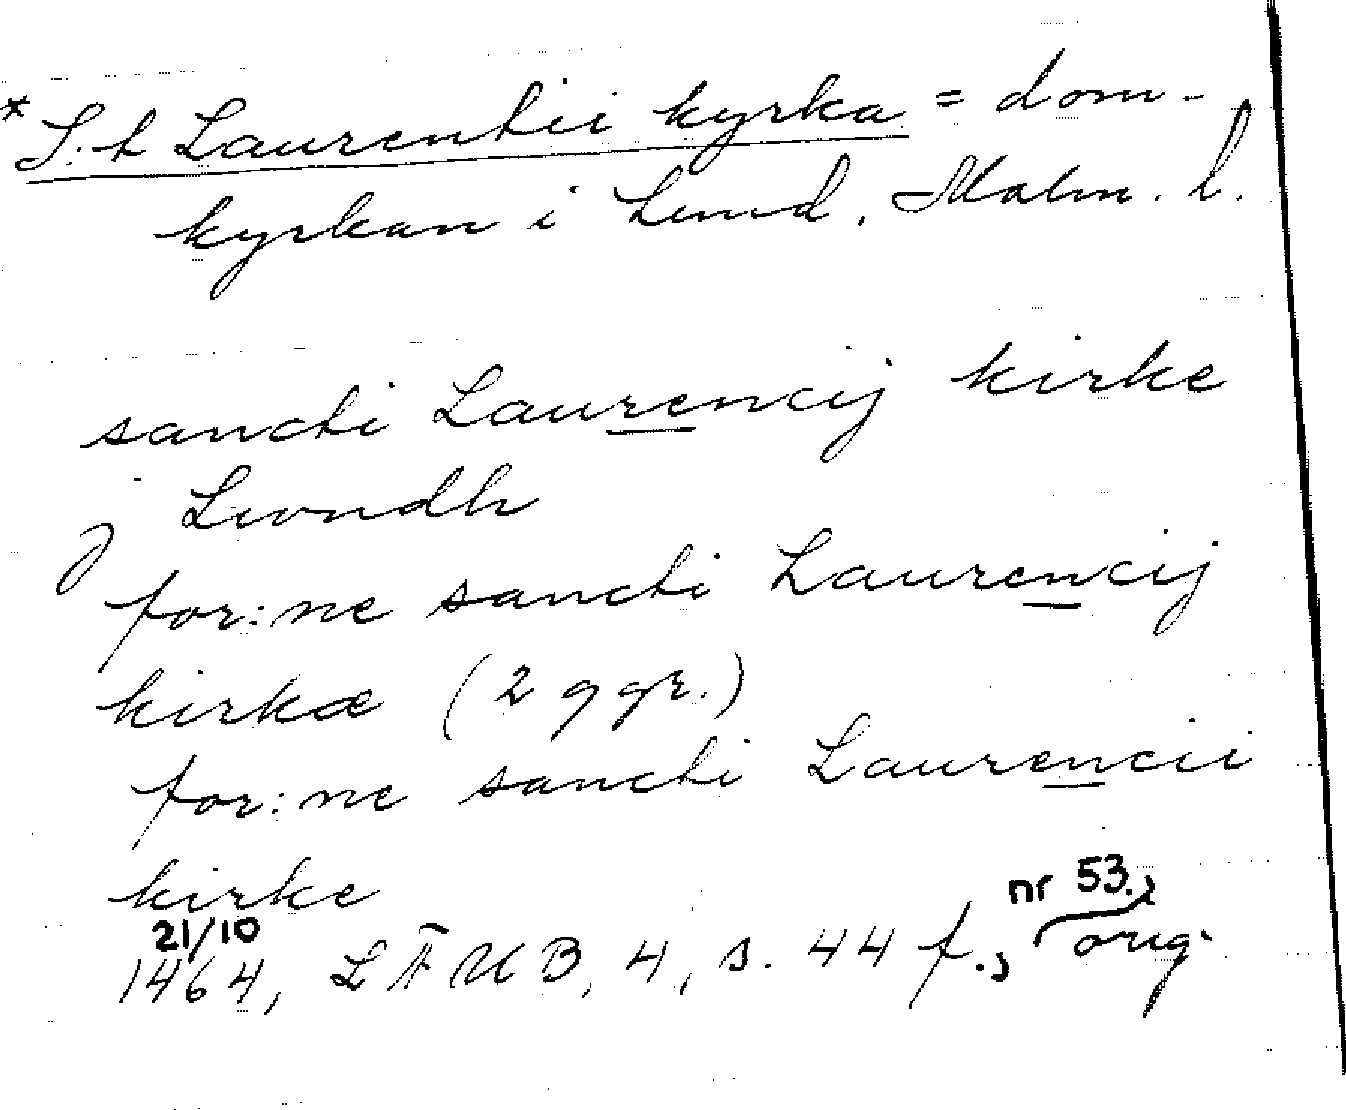 * S:t Laurentii kyrka = dom-
kyrkan i Lund, Malm. l.
sancti Laurencij kirke
j Lwndh
for:ne sancti Laurencij
kirkæ (2 ggr.)
for:ne sancti Laurencii
kirke
21/10 1464, LÄUB, 4, s. 44 f., nr 53., orig.